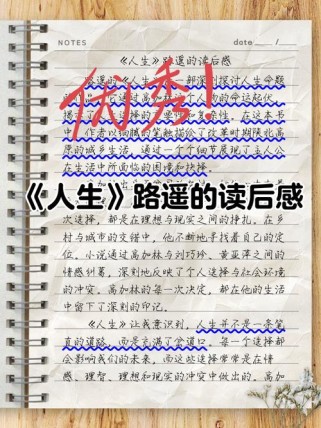 NOTES
date
《人生》路遥的读后感
路遥的《人生》是一部深刻探讨人生命题
优秀!
作者以细腻的笔触描绘了改革时期陕北高
原的城乡生活，通过一个个细节展现了主人公
在生活中所面临的困境和抉择。
《人生》路遥的读后感
次选择，都是在理想与现实之间的挣扎。在乡
村与城市的交错中，他不断地寻找着自己的定
位。小说通过高加林与刘巧珍、黄亚萍之间的
情感纠葛，深刻地反映了个人选择与社会环境
的冲突。高加林的每一次决定，都在他的生活
中留下了深刻的印记。
《人生》让我意识到，人生并不是一条笔
直的道路，而是充满了岔道口。每一个选择都
会影响我们的未来，而这些选择常常是在情
感、理智、理想和现实的冲突中做出的。高加